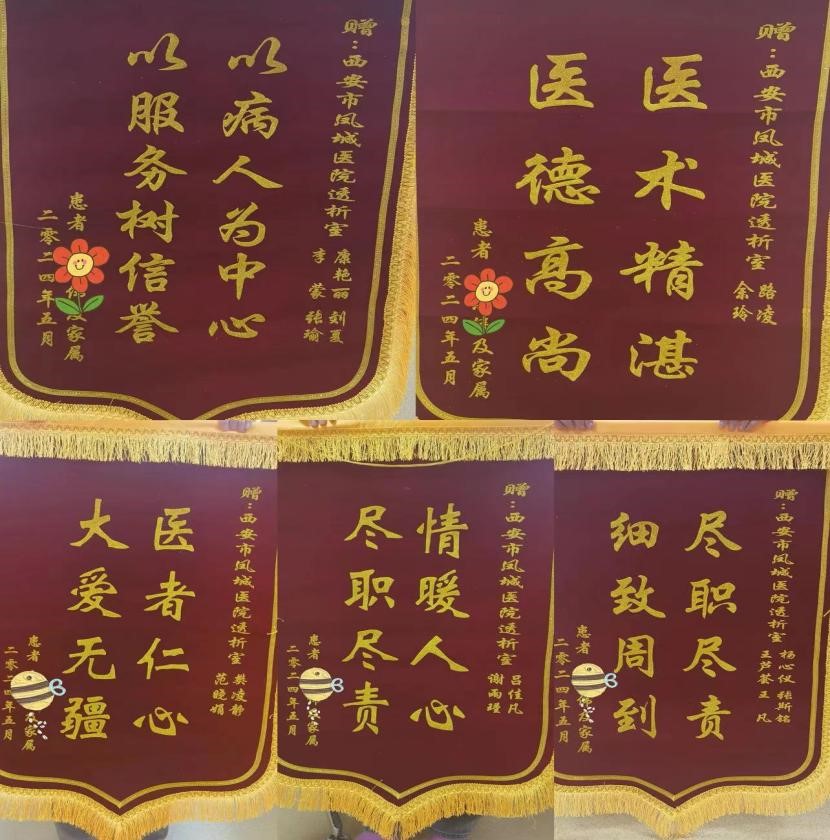 赠：西安市凤城医院透析室
康艳丽 刘夏
李蒙 张瑜
以病人为中心
以服务树信誉
患者 及家属
二零二四年五月
赠：西安市凤城医院透析室
路凌
余玲
医术精湛
医德高尚
患者 及家属
二零二四年五月
赠：西安市凤城医院透析室
樊凌静
范晓娟
医者仁心
大爱无疆
患者 家属
二零二四年五月
赠：西安市凤城医院透析室
吕佳凡
谢雨瑾
情暖人心
尽职尽责
患者 家属
二零二四年五月
赠：西安市凤城医院透析室
杨心仪 张斯铭
王芦荟 王凡
尽职尽责
细致周到
患者 及家属
二零二四年五月